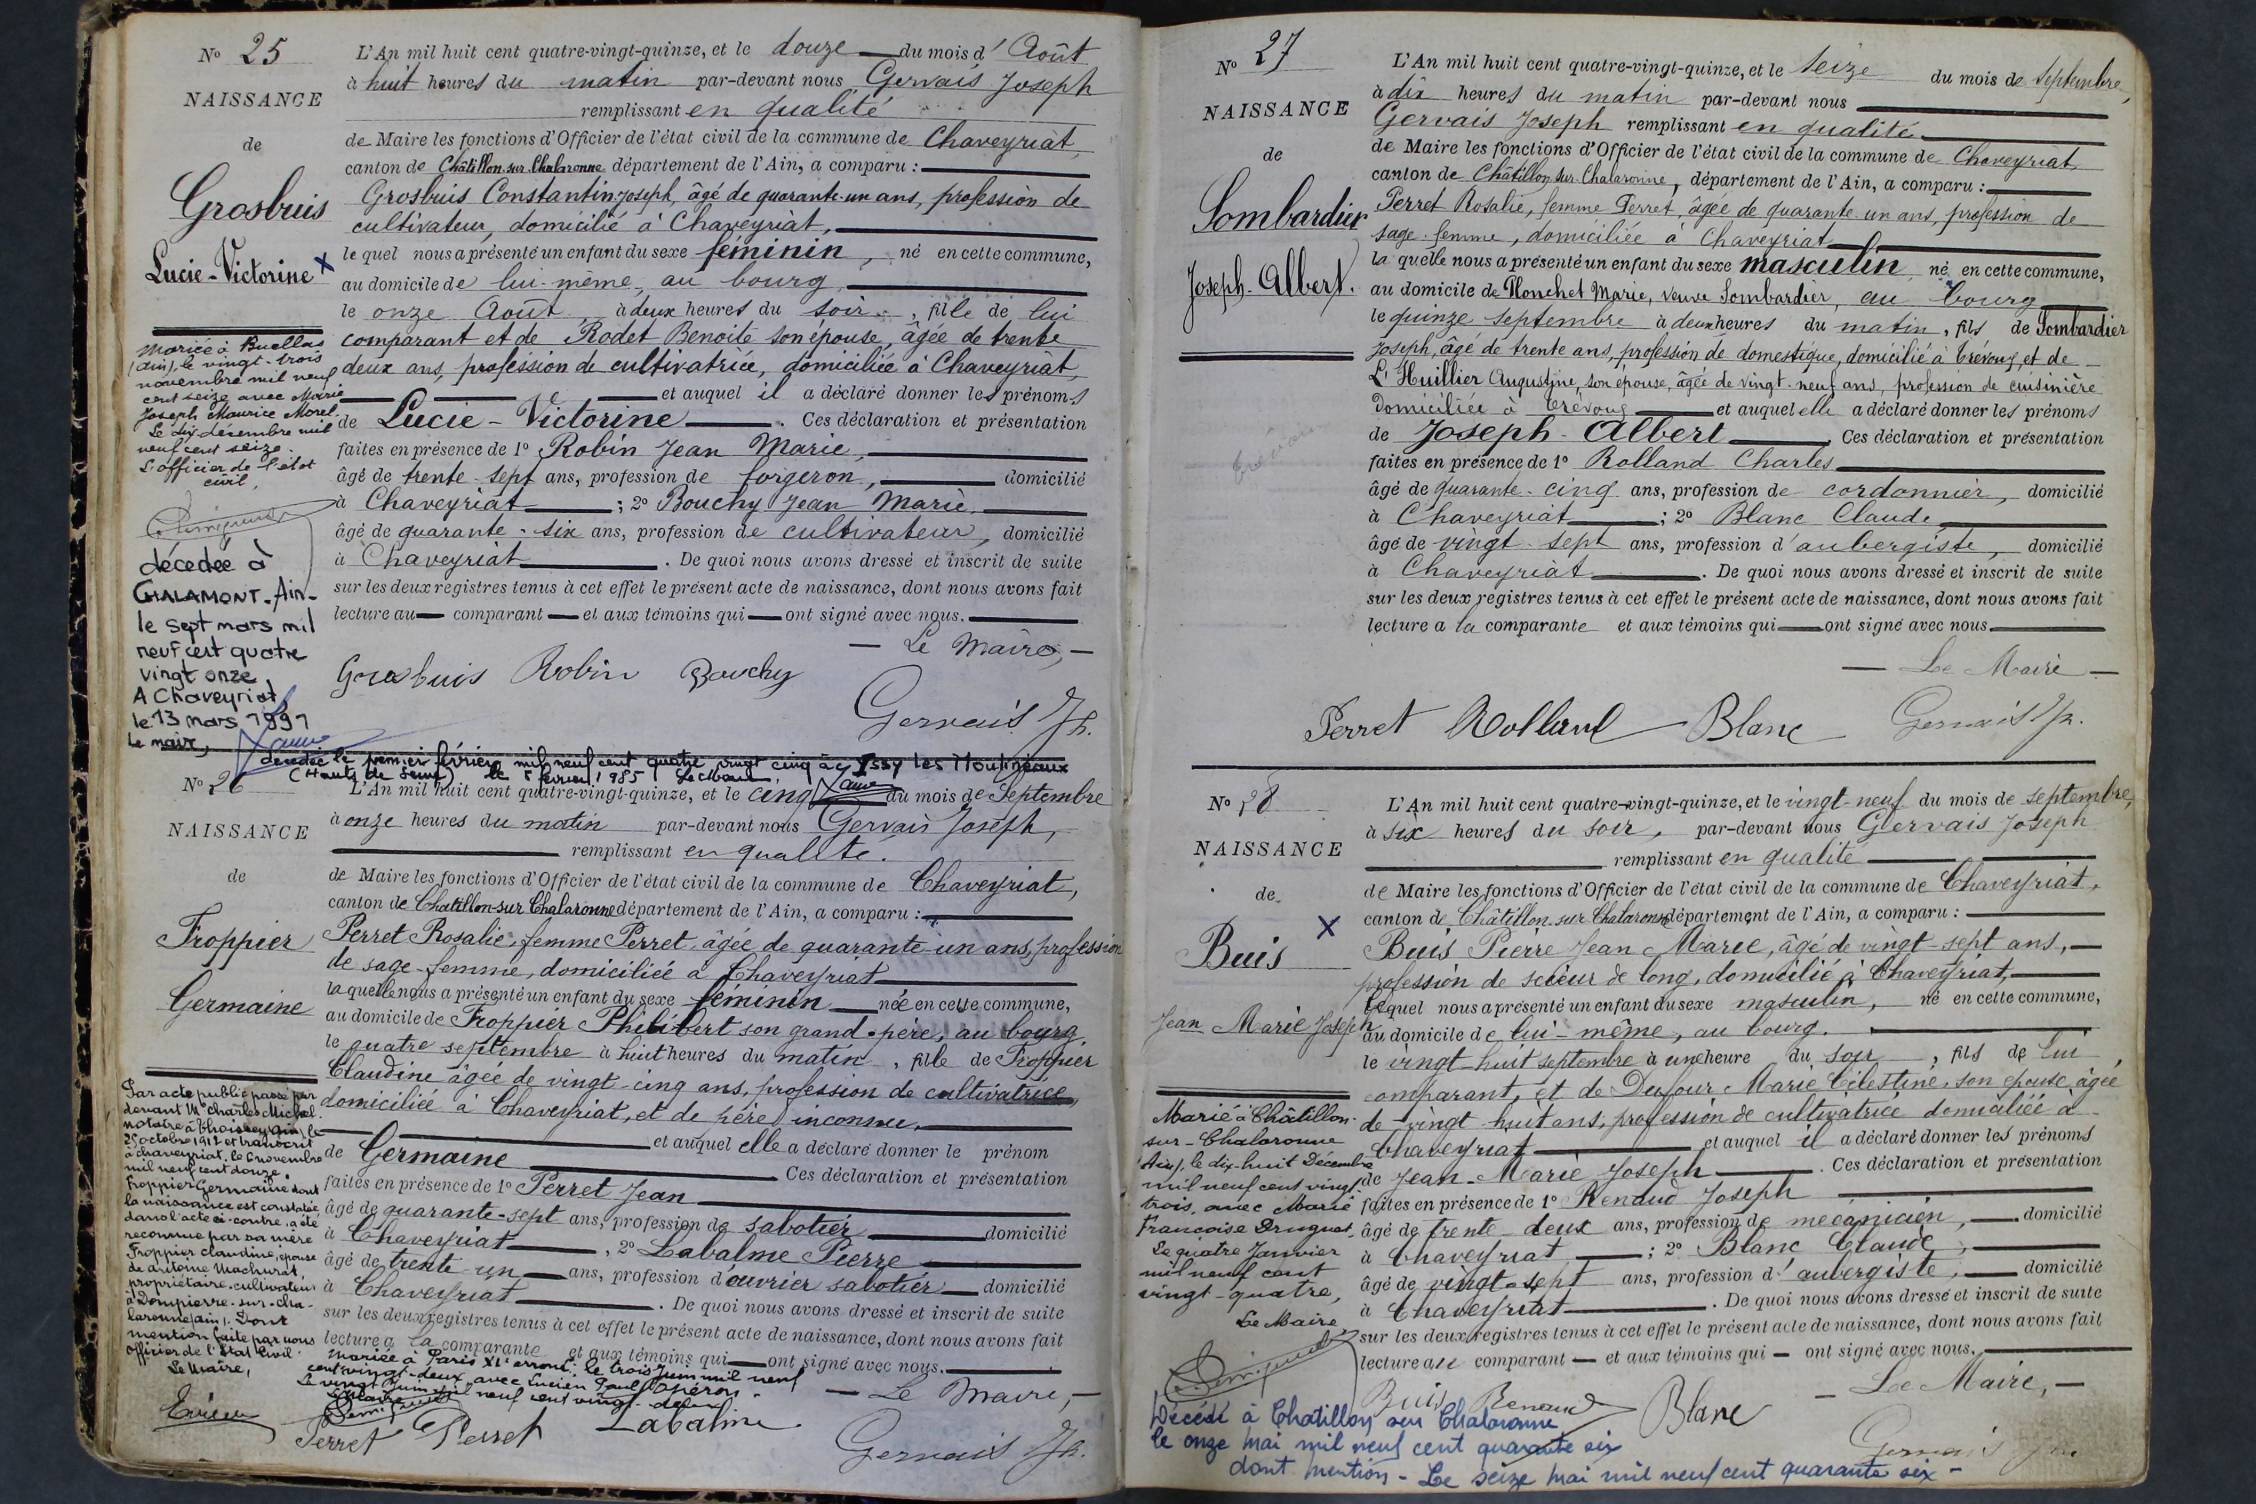 N° 25
NAISSANCE
de
Grosbuis
Lucie-Victorine
Mariée à Buellas
(Ain), le vingt-trois
novembre mil neuf
cent seize avec Marie
Joseph Maurice Morel.
Le dix décembre mil
neuf cent seize.
L'officier de l'état
civil,
décédée à
CHALAMONT-Ain-
le sept mars mil
neuf cent quatre
vingt onze
A Chaveyriat
le 13 mars 1991
Le maire,
L'An mil huit cent quatre-vingt-quinze, et le douze du mois d'Août
à huit heures du matin par-devant nous Gervais Joseph
remplissant en qualité
de Maire les fonctions d'Officier de l'état civil de la commune de Chaveyriat,
canton de Châtillon-sur-Chalaronne département de l'Ain, a comparu :
Grosbuis Constantin-Joseph, âgé de quarante-un ans, profession de
cultivateur, domicilié à Chaveyriat,
le quel nous a présenté un enfant du sexe féminin, né en cette commune,
au domicile de lui-même, au bourg,
le onze Août à deux heures du soir, fille de lui
comparant et de Rodet Benoite son épouse, âgée de trente
deux ans, profession de cultivatrice, domiciliée à Chaveyriat,
et auquel il a déclaré donner les prénoms
de Lucie-Victorine . Ces déclaration et présentation
faites en présence de 1° Robin Jean Marie,
âgé de trente sept ans, profession de forgeron, domicilié
à Chaveyriat ; 2° Bouchy Jean Marie,
âgé de quarante-six ans, profession de cultivateur, domicilié
à Chaveyriat . De quoi nous avons dressé et inscrit de suite
sur les deux registres tenus à cet effet le présent acte de naissance, dont nous avons fait
lecture au comparant et aux témoins qui ont signé avec nous.
Le Maire,
Grosbuis Robin Bouchy
Gervais Jh.
décédée le premier février mil neuf cent quatre vingt cinq à Issy les Moulineaux
(Hauts de Seine). le 5 février 1985
N° 26
NAISSANCE
de
Froppier
Germaine
Par acte public passé par
devant Me Charles Michel
notaire à Thoissey Ain, le
25 octobre 1912 et transcrit
à chaveyriat, le 6 novembre
mil neuf cent douze
Froppier Germaine dont
la naissance est constatée
dans l'acte ci-contre, a été
reconnue par sa mère
Froppier Claudine, épouse
de Antoine Machurat,
propriétaire-cultivateur
à Dompierre-sur-Cha-
laronne (Ain). Dont
mention faite par nous
Officier de l'Etat Civil.
Le Maire,
L'An mil huit cent quatre-vingt-quinze, et le cinq du mois de Septembre
à onze heures du matin par-devant nous Gervais Joseph,
remplissant en qualité.
de Maire les fonctions d'Officier de l'état civil de la commune de Chaveyriat,
canton de Chatillon-sur Chalaronne département de l'Ain, a comparu :
Perret Rosalie, femme Perret, âgée de quarante-un ans, profession
de sage-femme, domiciliée à Chaveyriat
la quelle nous a présenté un enfant du sexe féminin née en cette commune,
au domicile de Froppier Philibert son grand-père, au bourg,
le quatre septembre à huit heures du matin, fille de Froppier
Claudine âgée de vingt-cinq ans, profession de cultivatrice,
domiciliée à Chaveyriat, et de père inconnu,
et auquel elle a déclaré donner le prénom
de Germaine Ces déclaration et présentation
faites en présence de 1° Perret Jean
âgé de quarante-sept ans, profession de sabotier domicilié
à Chaveyriat , 2° Labalme Pierre
âgé de trente-un ans, profession d'ouvrier sabotier domicilié
à Chaveyriat . De quoi nous avons dressé et inscrit de suite
sur les deux registres tenus à cet effet le présent acte de naissance, dont nous avons fait
lecture a la comparante et aux témoins qui ont signé avec nous.
Mariée à Paris XIe arront. le trois Juin mil neuf
cent vingt-deux avec Lucien Paul
Le vingt Juin mil neuf cent vingt-deux
Le Maire,
Perret Perret Labalme
Gervais Jh.
N° 27
NAISSANCE
de
Lombardier
Joseph-Albert.
L'An mil huit cent quatre-vingt-quinze, et le seize du mois de septembre,
à dix heures du matin par-devant nous
Gervais Joseph remplissant en qualité
de Maire les fonctions d'Officier de l'état civil de la commune de Chaveyriat
canton de Châtillon sur Chalaronne, département de l'Ain, a comparu :
Perret Rosalie, femme Perret, âgée de quarante un ans, profession de
sage-femme, domiciliée à Chaveyriat
la quelle nous a présenté un enfant du sexe masculin né en cette commune,
au domicile de Plonchet Marie, veuve Lombardier, au bourg
le quinze septembre à deux heures du matin, fils de Lombardier
Joseph, âgé de trente ans, profession de domestique, domicilié à Trévoux, et de
L'Huillier Augustine, son épouse, âgée de vingt-neuf ans, profession de cuisinière
domiciliée à Trévoux et auquel elle a déclaré donner les prénoms
de Joseph-Albert Ces déclaration et présentation
faites en présence de 1° Rolland Charles
âgé de quarante-cinq ans, profession de cordonnier, domicilié
à Chaveyriat ; 2° Blanc Claude
âgé de vingt-sept ans, profession d'aubergiste, domicilié
à Chaveyriat . De quoi nous avons dressé et inscrit de suite
sur les deux registres tenus à cet effet le présent acte de naissance, dont nous avons fait
lecture a la comparante et aux témoins qui ont signé avec nous
Le Maire
Perret Rolland Blanc Gervais Jh.
N° 28
NAISSANCE
de
Buis
Jean Marie Joseph
Marié à Châtillon-
sur-Chalaronne
(Ain), le dix-huit Décembre
mil neuf cent vingt
trois, avec Marie
Françoise Druguet.
Le quatre Janvier
mil neuf cent
vingt-quatre,
Le Maire
L'An mil huit cent quatre-vingt-quinze, et le vingt-neuf du mois de septembre,
à six heures du soir, par-devant nous Gervais Joseph
remplissant en qualité
de Maire les fonctions d'Officier de l'état civil de la commune de Chaveyriat,
canton de Châtillon-sur-Chalaronne département de l'Ain, a comparu :
Buis Pierre Jean Marie, âgé de vingt-sept ans,
profession de scieur de long, domicilié à Chaveyriat,
lequel nous a présenté un enfant du sexe masculin, né en cette commune,
au domicile de lui-même, au bourg.
le vingt-huit septembre à une heure du soir, fils de lui
comparant, et de Dufour Marie Célestine, son épouse, âgée
de vingt-huit ans, profession de cultivatrice domiciliée à
Chaveyriat et auquel il a déclaré donner les prénoms
de Jean-Marie Joseph . Ces déclaration et présentation
faites en présence de 1° Renaud Joseph
âgé de trente-deux ans, profession de mécanicien, domicilié
à Chaveyriat ; 2° Blanc Claude,
âgé de vingt-sept ans, profession d'aubergiste, domicilié
à Chaveyriat . De quoi nous avons dressé et inscrit de suite
sur les deux registres tenus à cet effet le présent acte de naissance, dont nous avons fait
lecture au comparant et aux témoins qui ont signé avec nous.
Le Maire,
Buis Renaud Blanc
Décédé à Chatillon sur Chalaronne
le onze mai mil neuf cent quarante six
dont mention - Le seize mai mil neuf cent quarante six -